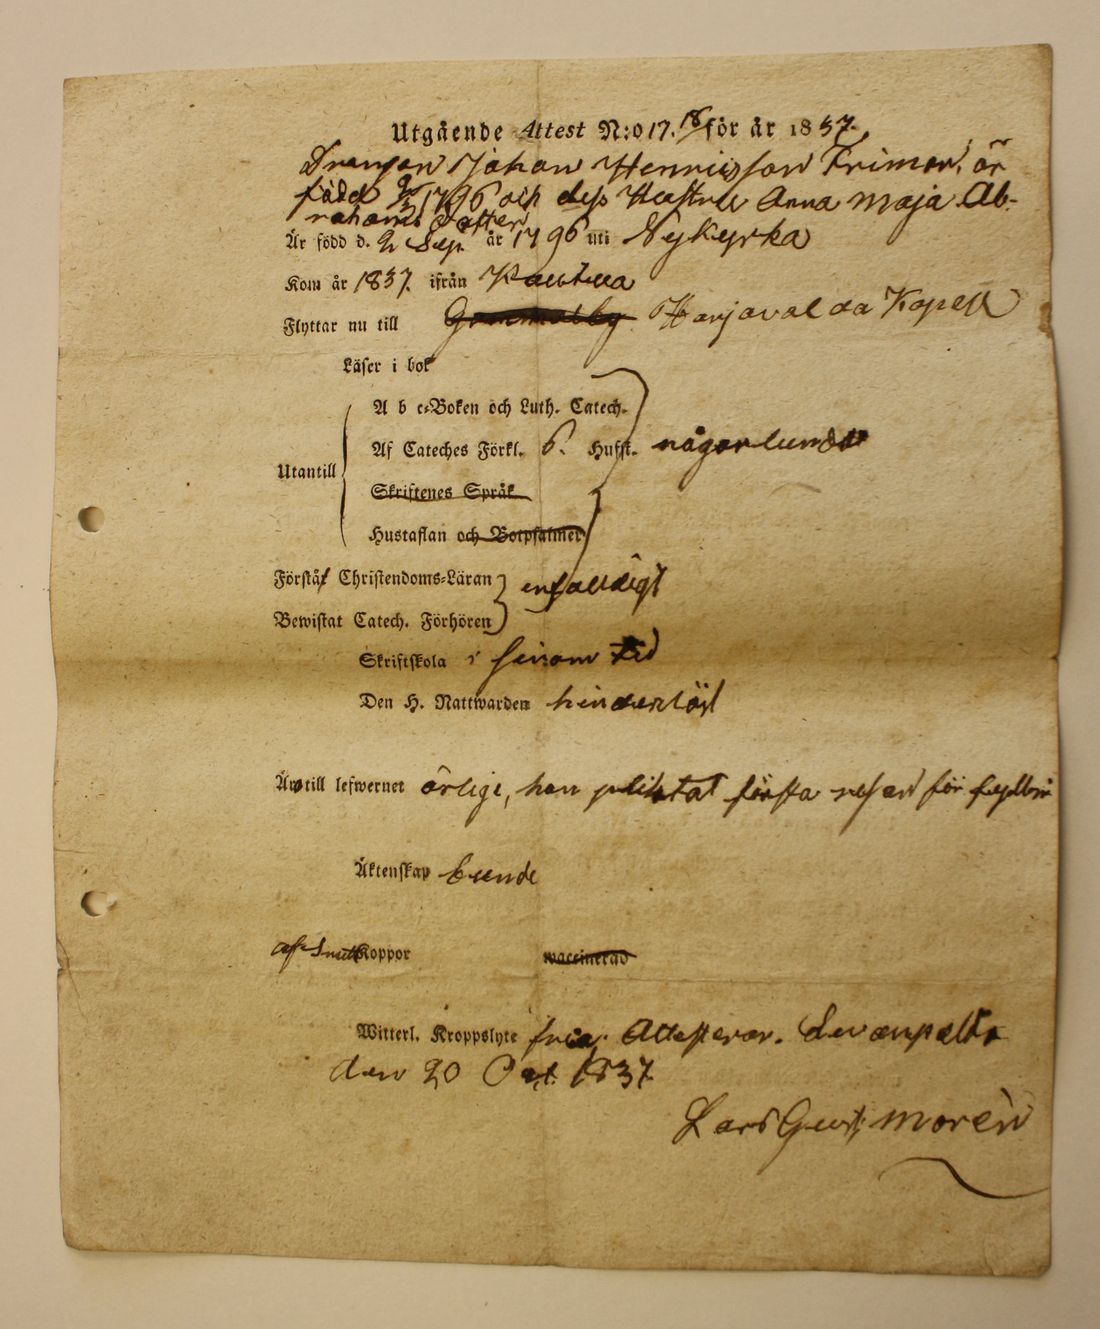 Utgående Attest N:o 17. 18 för år 1837.
Drengen Johan Henricsson Friman, är
född 1796 och dess Hustru Anna Maja Ab-
rahams dotter
Är född d. 2 Sep. år 1796 uti Nykyrka
Kom år 1837. ifrån Kauttua
Flyttar nu till Harjavalda Kapell
Läser i bok
A b c-Boken och Luth. Catech.
Af Cateches Förkl. 6. Hufst. någorlunda
Utantill
Skriftenes Språk
Hustaflan och Botpsalmer
Förstå Christendoms-Läran enfaldigt
Bewistat Catech. Förhören
Skriftskola i sinom tid
Den H. Nattwarden hinderlöst
Äro till lefwernet ärlige, han pliktat första resan för fylleri
Äktenskap bunde
af Smittkoppor waccinerad
Witterl. Kroppslyte fria. Attesterar. Levanpelto
den 20 Oct. 1837.
Lars Gust. Morén